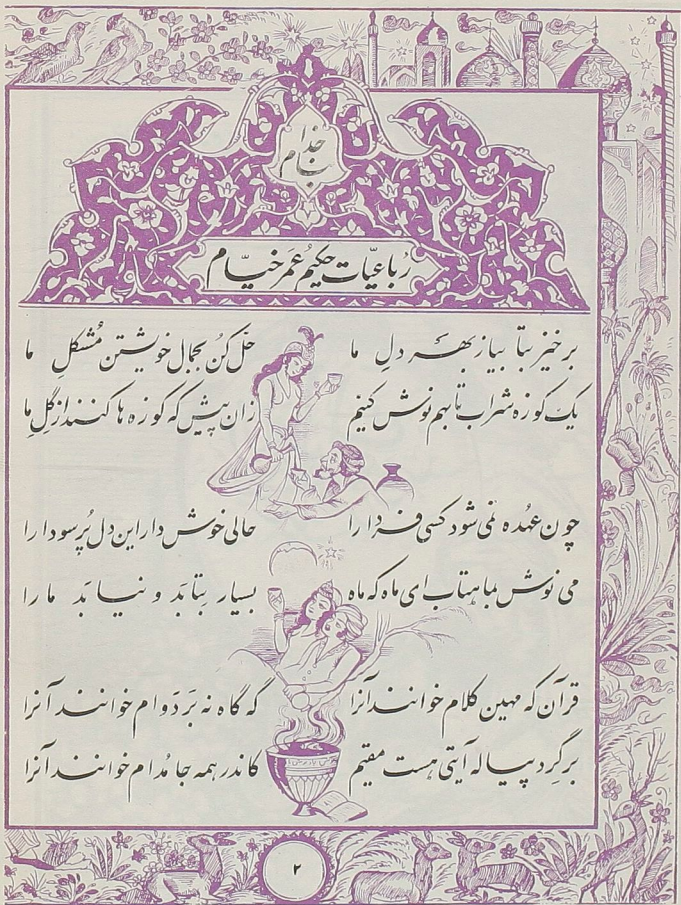 بنام خدا
رُباعیّات حکیم عُمَر خیّام
برخیز بتا بیا ز بهر دلِ ما حل کُن بجمال خویشتن مُشکلِ ما
یک کوزه شراب تا بهم نوش کنیم زان پیش که کوزه‌ها کنند از گِلِ ما
چون عهُده نمی شود کسی فردا را حالی خوش دار این دل پُر سودا را
می نوش بماهتاب ای ماه که ماه بسیار بِتابَد و نیابَد ما را
قرآن که مهین کلام خوانند آنرا که گاه نه بَر دَوام خوانند آنرا
بر گِرد پیاله آیتی هست مقیم کاندر همه جا مُدام خوانند آنرا
۲